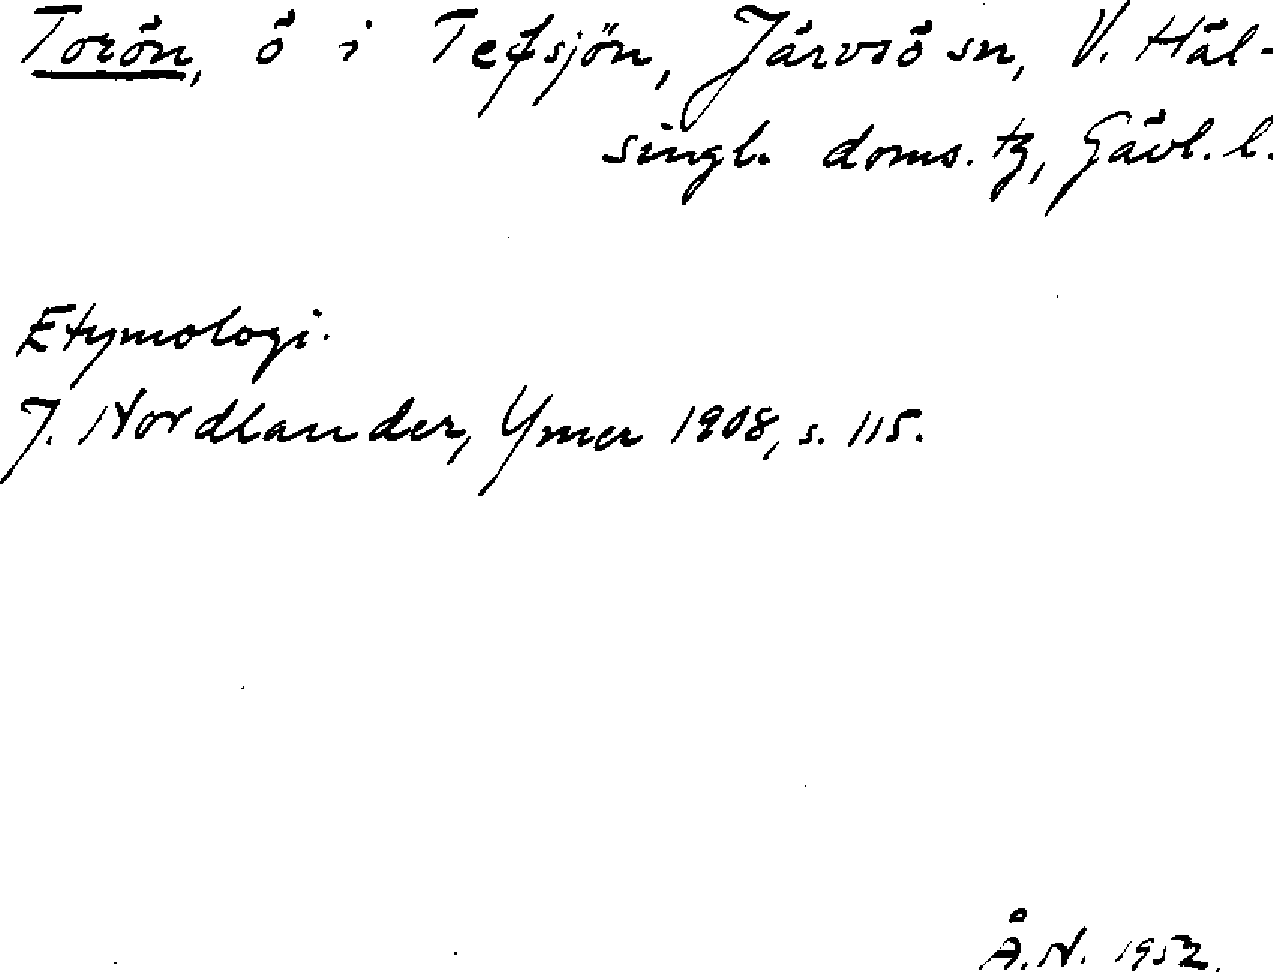 Torön, ö i Tefsjön, Järvsö sn, V. Häl-
singl. doms. tg, Gävl. l.
Etymologi.
J. Nordlander, Ymer 1908, s. 115.
Å.N. 1952.